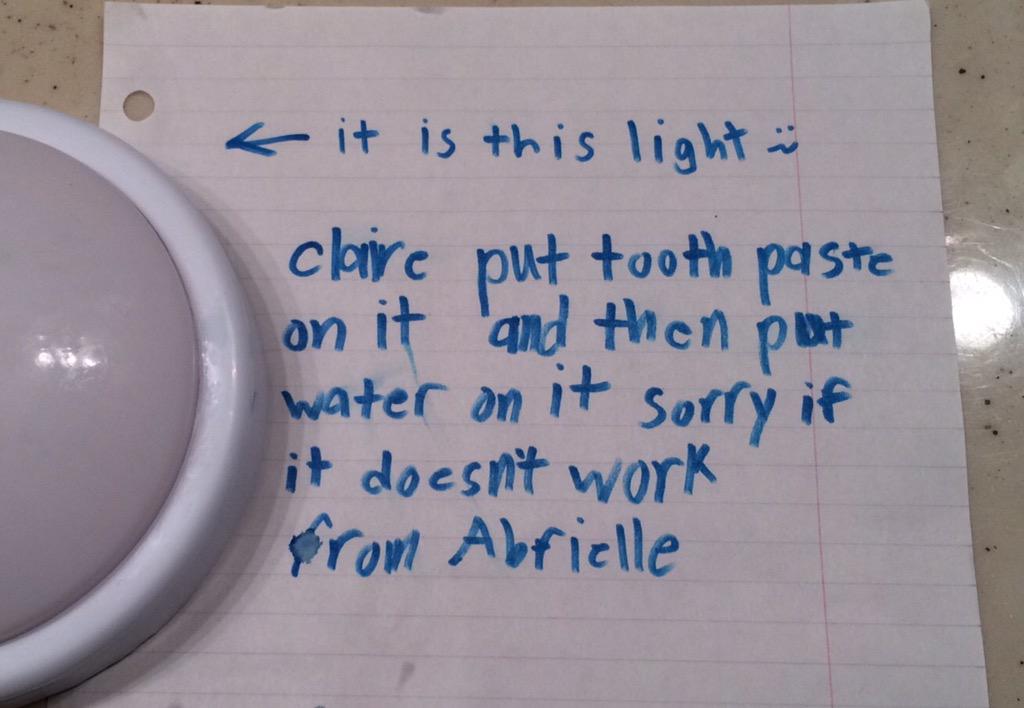 ← it is this light :~
claire put tooth paste
on it and then put
water on it sorry if
it doesn't work
from Abrielle